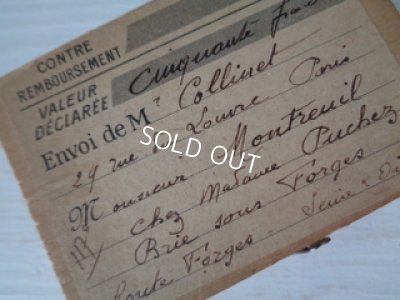 CONTRE
REMBOURSEMENT
VALEUR
DÉCLARÉE
Cinquante
Envoi de Mr Collinet
29 rue du Louvre Paris
Monsieur Montreuil
chez Madame Puchez
Brie sous Forges
Route Forges - Seine
SOLD OUT